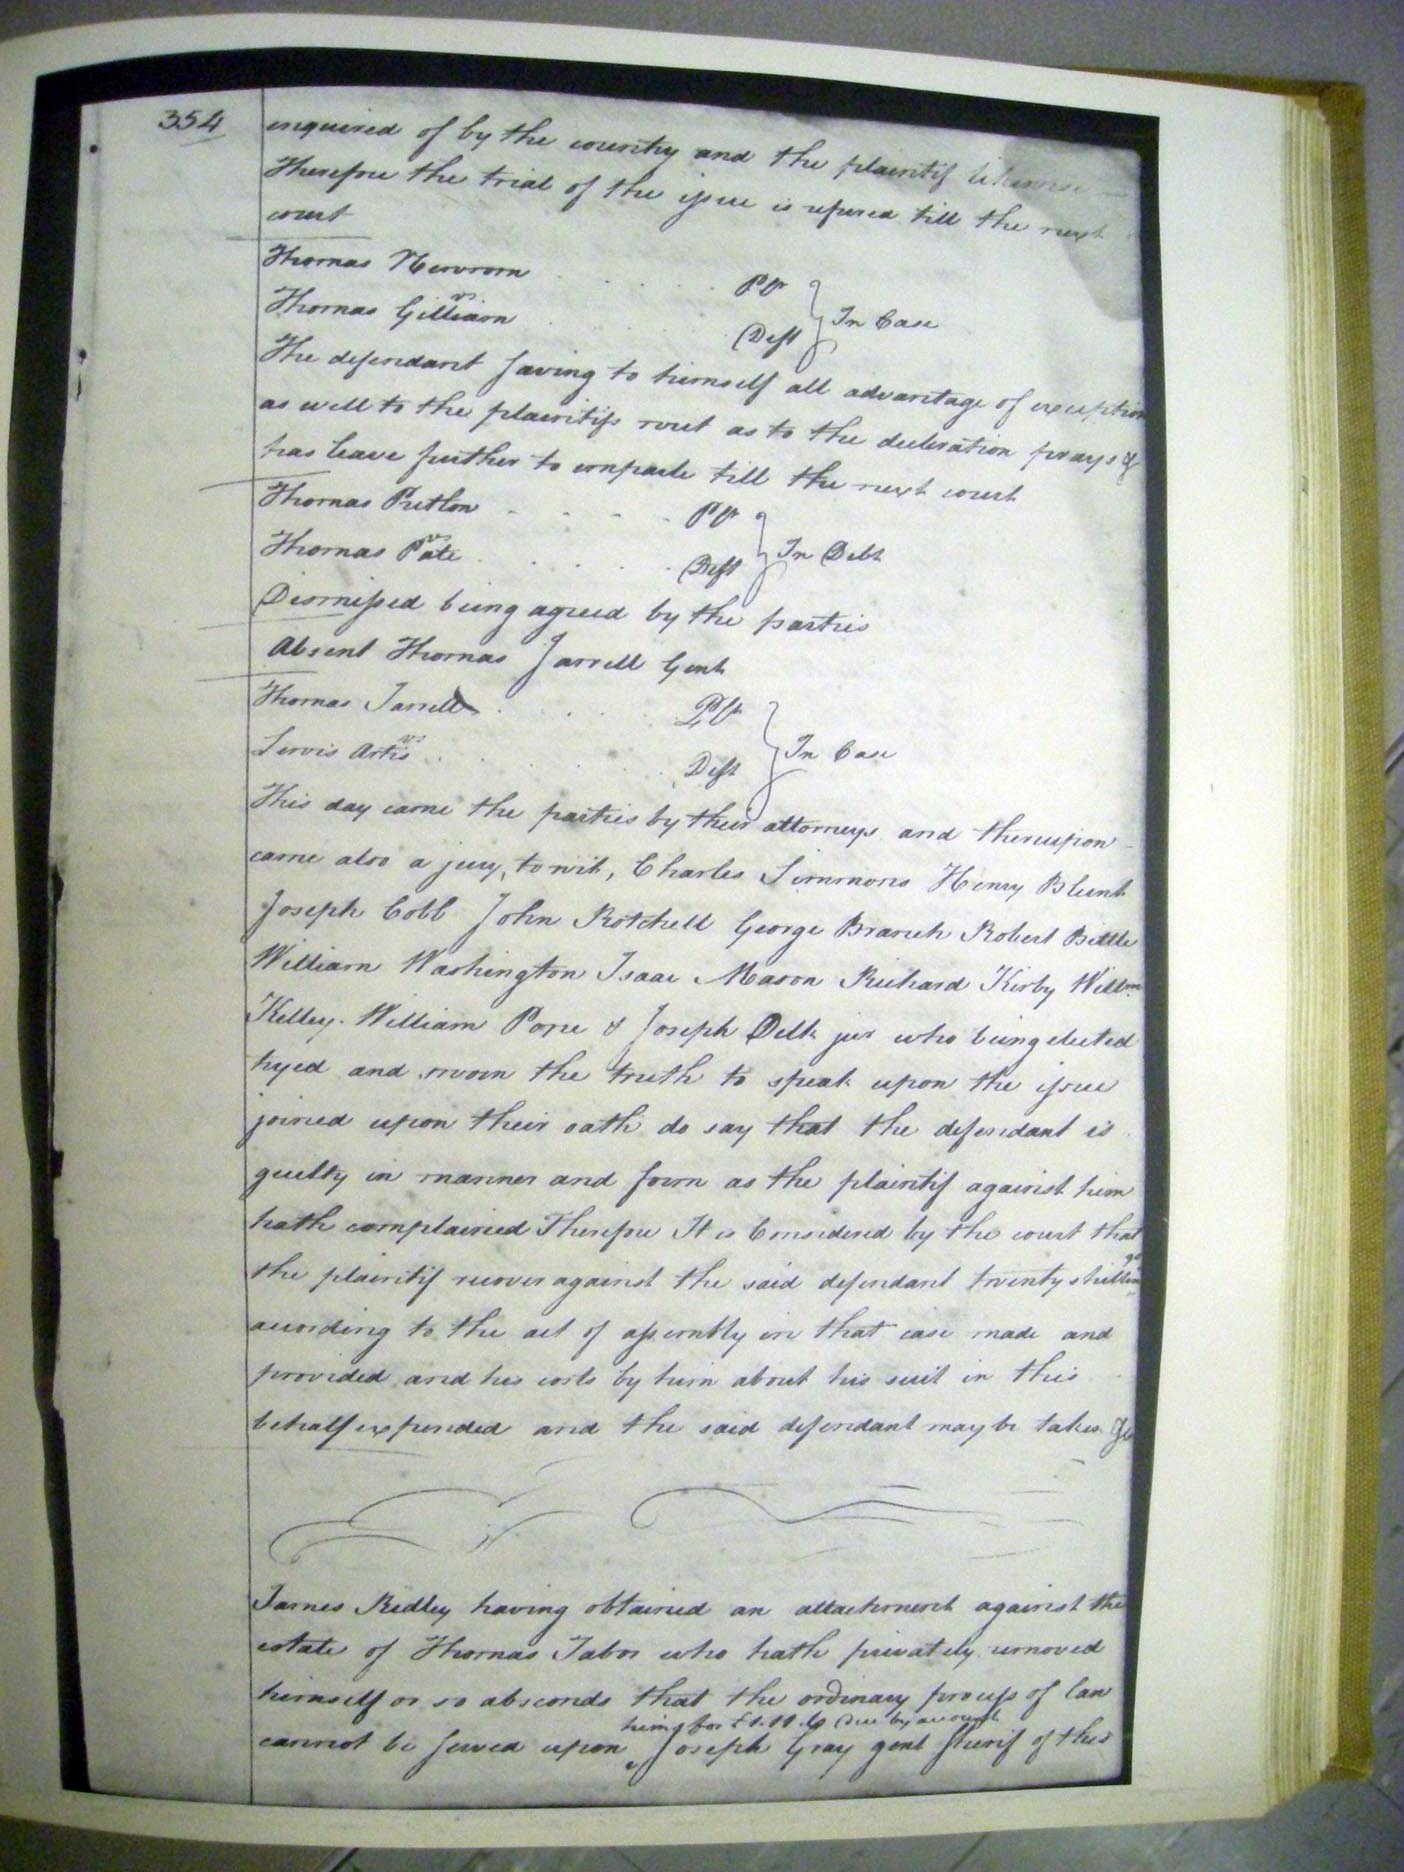 354
enquired of by the country and the plaintif likewise
Therefore the trial of the issue is refered till the next
court
Thomas Newsom . . . . Plt
vs } In Case
Thomas Gilliam . . . . Deft
The defendant saving to himself all advantage of exception
as well to the plaintifs writ as to the decleration prays &
has leave further to imparle till the next court
Thomas Pretlow . . . . Plt
vs } In Debt
Thomas Pate . . . . Deft
Dismissed being agreed by the parties
Absent Thomas Jarrell Gent
Thomas Jarrell . . . . Plt
vs } In Case
Lewis Artis . . . . Deft
This day came the parties by their attorneys and thereupon
came also a jury, to wit, Charles Simmons Henry Blunt
Joseph Cobb John Rotchell George Branch Robert Bittle
William Washington Isaac Mason Richard Kirby Willm
Kelley. William Pope & Joseph Delk jur who being elected
tryed and sworn the truth to speak upon the issue
joined upon their oath do say that the defendant is
guilty in manner and form as the plaintif against him
hath complained Therefore It is Considered by the court that
the plaintif recover against the said defendant twenty shillings
according to the act of assembly in that case made and
provided and his costs by him about his suit in this
behalf expended and the said defendant may be taken &c
James Ridley having obtained an attachment against the
estate of Thomas Tabor who hath privately removed
himself or so absconds that the ordinary process of law
him for £1.11.6 Due by account
cannot be served upon ‸ Joseph Gray gent Sherif of this